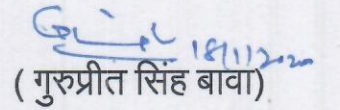 18/1/2020
( गुरुप्रीत सिंह बावा)